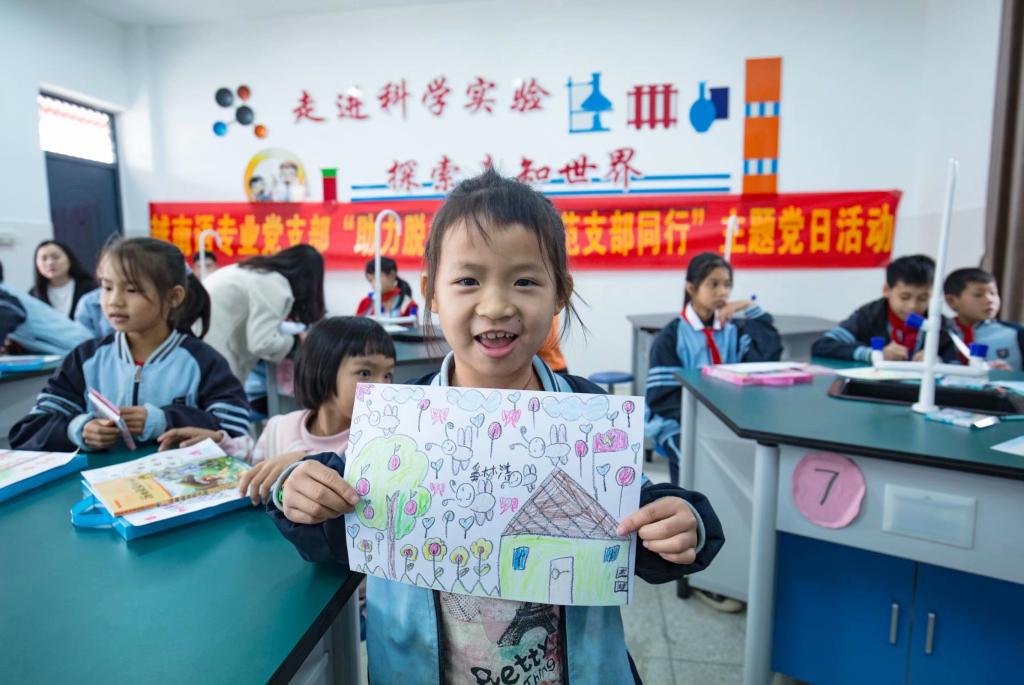 走进科学实验
探索 知世界
城南 专业党支部“助力脱 范支部同行”主题党日活动
7
Pretty
Thing